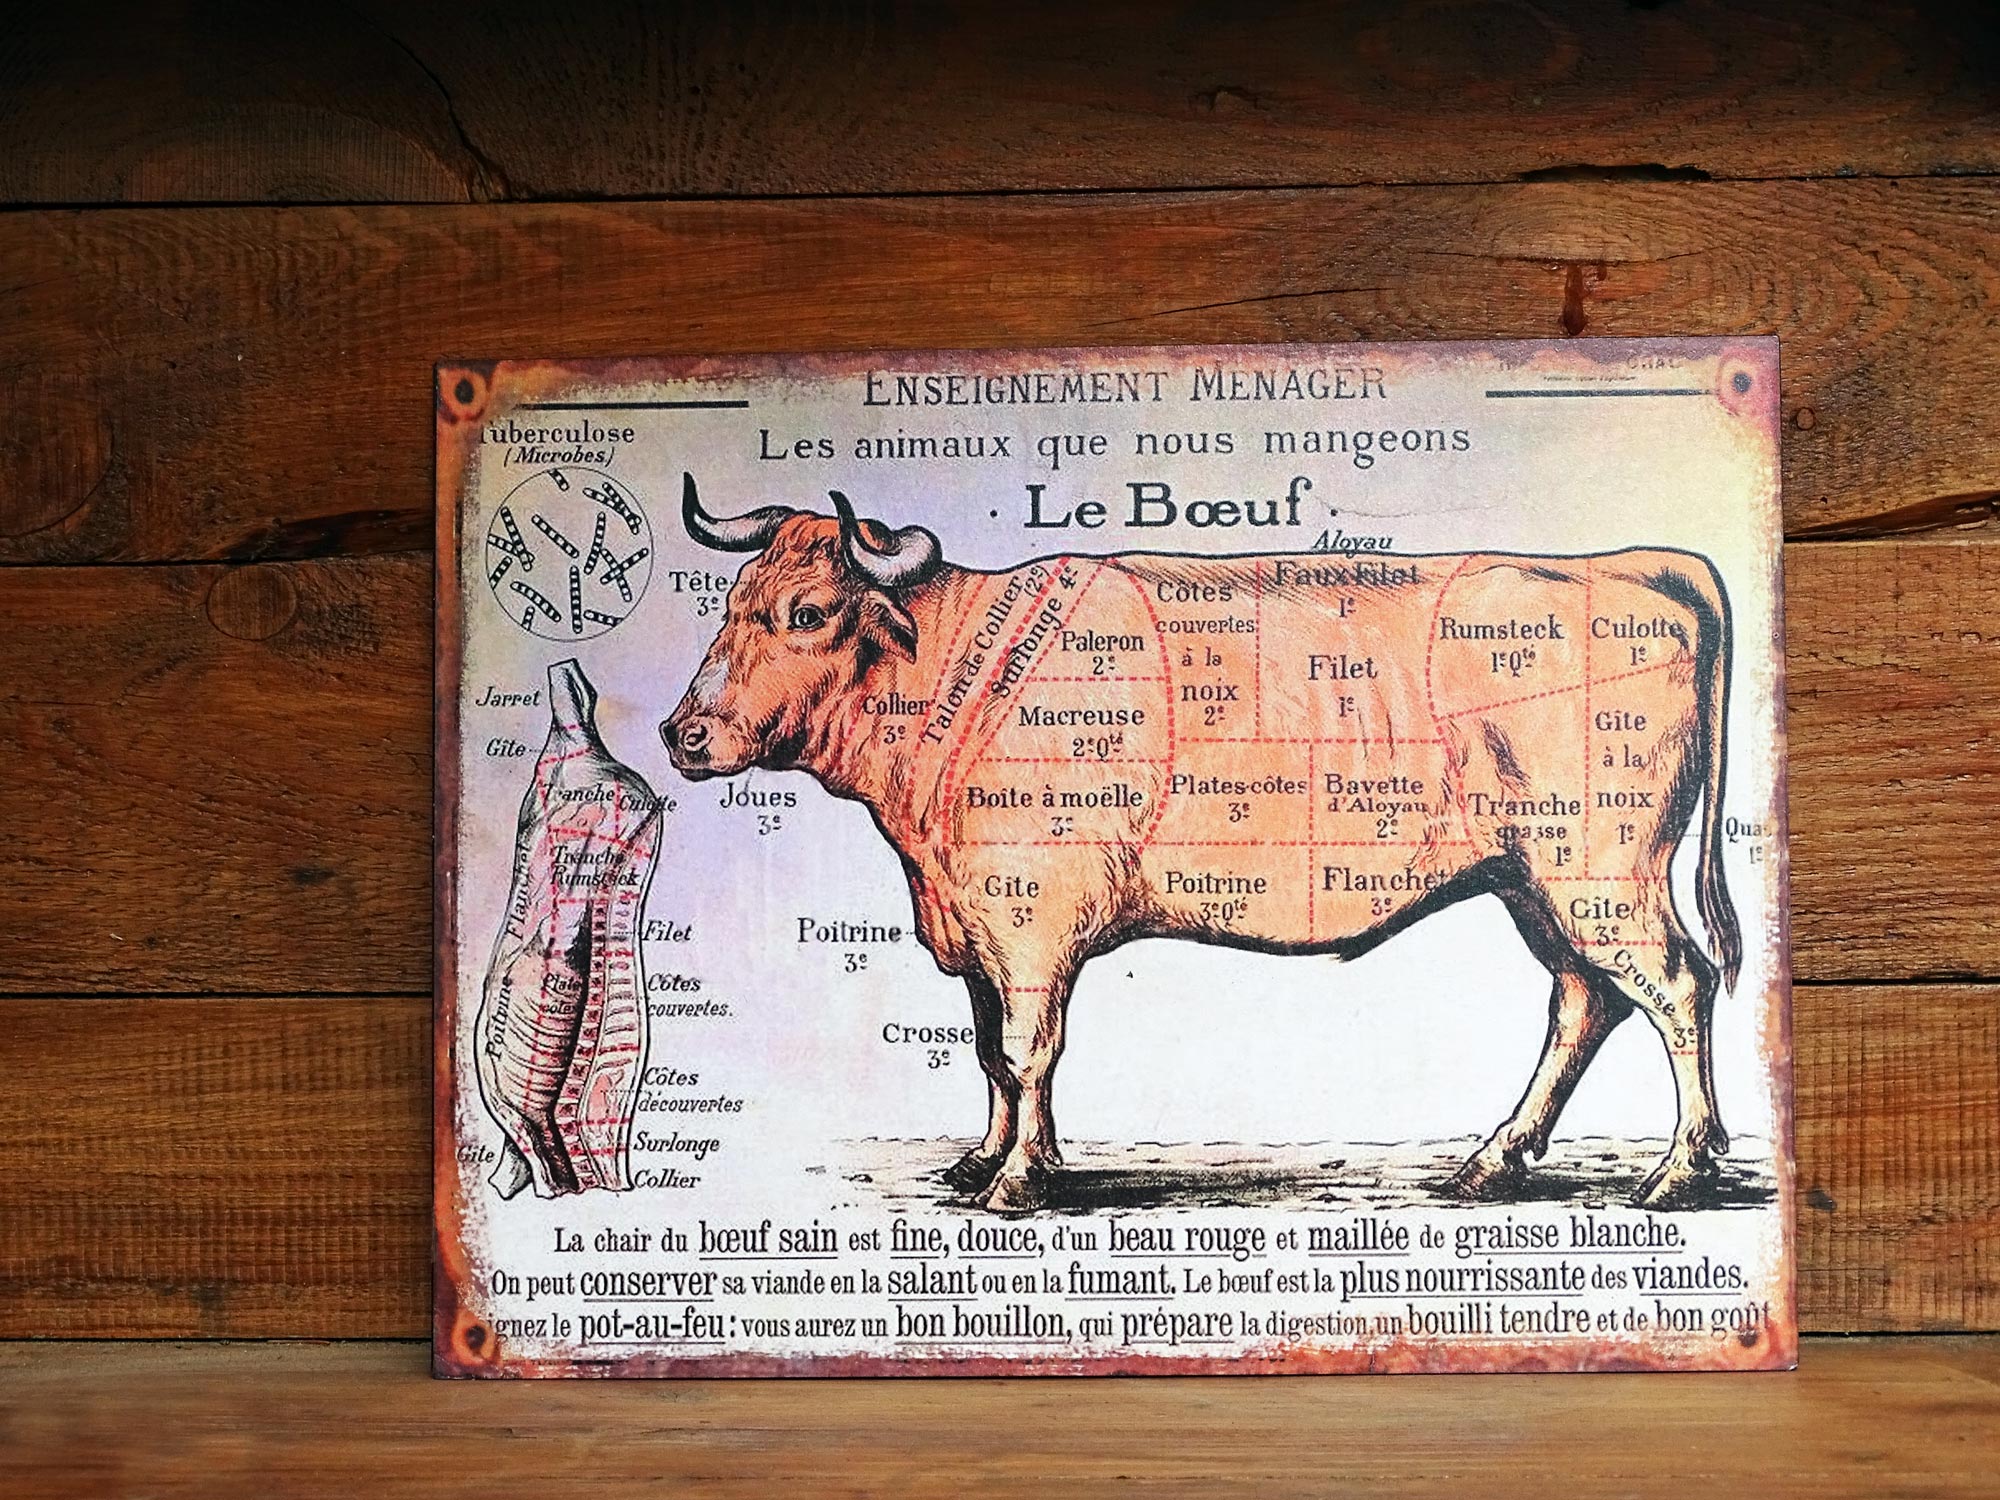 ENSEIGNEMENT MENAGER
Les animaux que nous mangeons
· Le Bœuf ·
Tuberculose
(Microbes)
Aloyau
Tête
3ᵉ
Talon de Collier (2ᵉ)
Surlonge 4ᵉ
Collier
3ᵉ
Paleron
2ᵉ
Macreuse
2ᵉ Qᵗᵉ
Boîte à moëlle
3ᵉ
Gite
3ᵉ
Côtes
couvertes
à la
noix
2ᵉ
Faux Filet
1ᵉ
Filet
1ᵉ
Rumsteck
1ᵉ Qᵗᵉ
Culotte
1ᵉ
Gîte
à la
noix
1ᵉ
Plates-côtes
3ᵉ
Bavette
d'Aloyau
2ᵉ
Tranche
grasse
1ᵉ
Poitrine
3ᵉ Qᵗᵉ
Flanchet
3ᵉ
Gîte
3ᵉ
Crosse 3ᵉ
Joues
3ᵉ
Poitrine
3ᵉ
Crosse
3ᵉ
Jarret
Gîte
Tranche
Culotte
Tranche
Rumsteck
Flanchet
Filet
Poitrine
Plate
côtes
Côtes
couvertes.
Côtes
découvertes
Surlonge
Gîte
Collier
La chair du bœuf sain est fine, douce, d'un beau rouge et maillée de graisse blanche.
On peut conserver sa viande en la salant ou en la fumant. Le bœuf est la plus nourrissante des viandes.
ignez le pot-au-feu: vous aurez un bon bouillon, qui prépare la digestion, un bouilli tendre et de bon goût